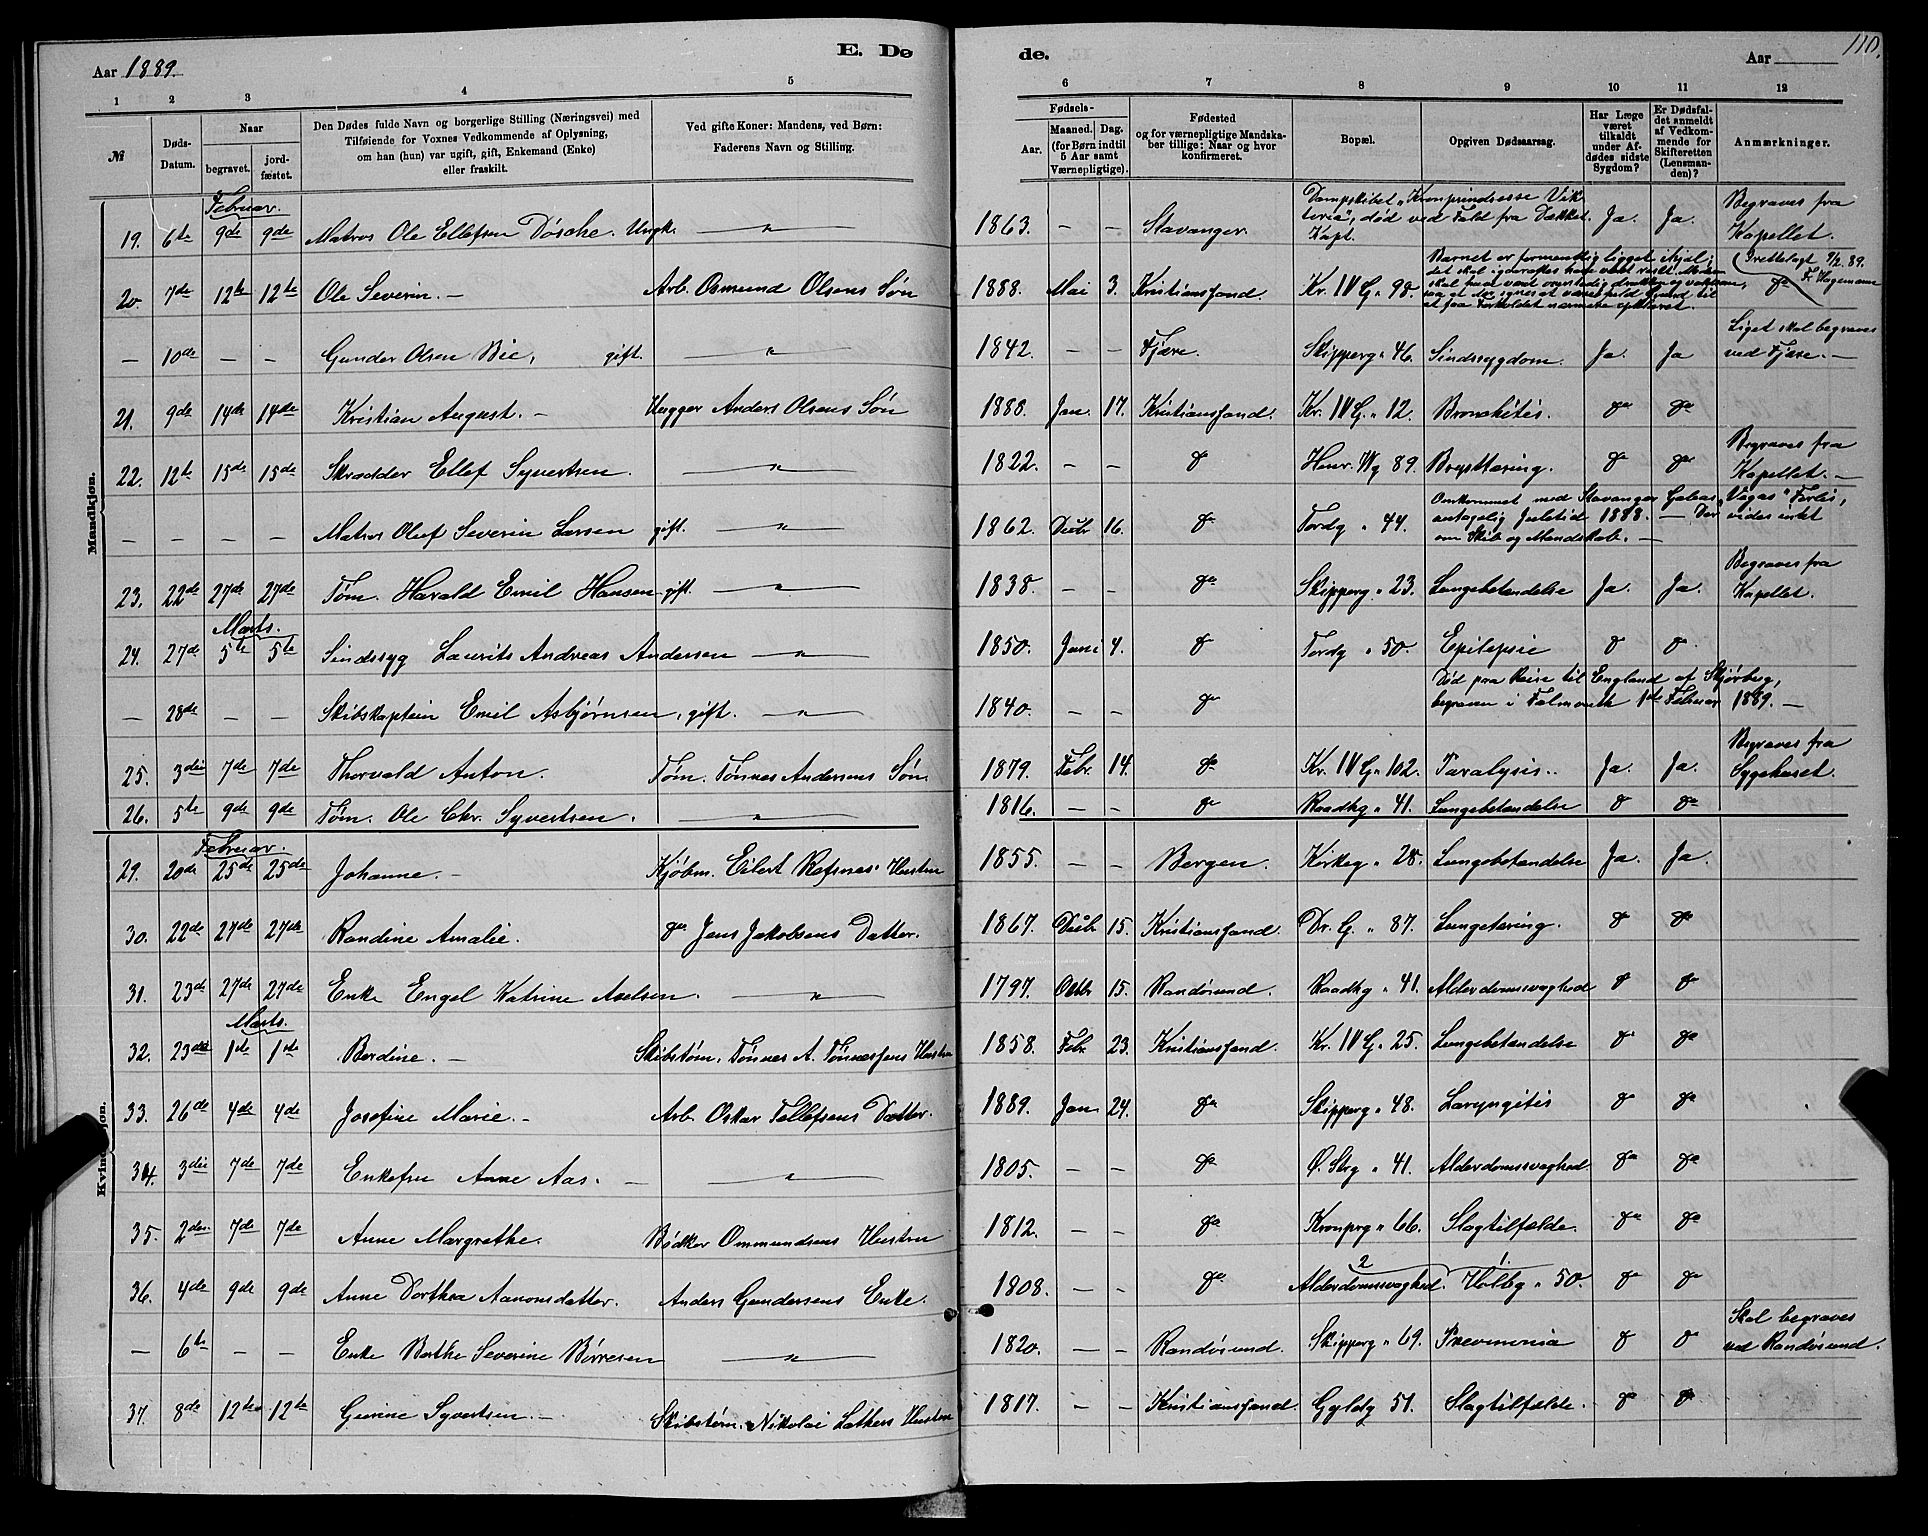 E. Dø de.
110.
Aar 1889.
Aar
1 2 3 4 5 6 7 8 9 10 11 12
№
Døds-Datum.
Naar
begravet.
jord-fæstet.
Den Dødes fulde Navn og borgerlige Stilling (Næringsvei) med
Tilføiende for Voxnes Vedkommende af Oplysning,
om han (hun) var ugift, gift, Enkemand (Enke)
eller fraskilt.
Ved gifte Koner: Mandens, ved Børn:
Faderens Navn og Stilling.
Fødsels-
Aar.
Maaned. Dag.
(for Børn indtil
5 Aar samt
Værnepligtige).
Fødested
og for værnepligtige Mandska-
ber tillige: Naar og hvor
konfirmeret.
Bopæl.
Opgiven Dødsaarsag.
Har Læge
været
tilkaldt
under Af-
dødes sidste
Sygdom?
Er Dødsfal-
det anmeldt
af Vedkom-
mende for
Skifteretten
(Lensman-
den)?
Anmærkninger.
Mandkjøn.
Februar.
19. 6te 9de 9de Matros Ole Ellefsen Dösche. Ungk. — " — 1863. — — Stavanger. Dampskibet "Kronprindsesse Viktoria", død ved Fald fra Dækket. Kapt. Ja. Ja. Begraves fra Kapellet.
20. 7de 12te 12te Ole Severin. — Arb. Osmund Olsens Søn 1888. Mai 3. Kristianssand. Kr. IV G. " 98. Barnet er formentlig ligget ihjel; do Frettelagt 9/2. 89. F. Hagemann
— 10de — — Gunder Olsen Bie, gift. — " — 1842. — — Fjære. Skipperg " 46. Sindssygdom. Ja. Ja Liget skal begraves ved Fjære. —
21. 9de 14de 14de Kristian August. — Bygger Anders Olsens Søn 1888. Jan. 17. Kristianssand. Kr. IV G. " 12. Bronchitis. do do
22. 12te 15de 15de Skrædder Ellef Syvertsen. — " — 1822. — — do Henr. Wg 89. Brysttæring. do do Begraves fra Kapellet. —
— — — — Matros Oluf Severin Larsen gift. — " — 1862. Decbr 16. do Tordg " 44. Omkommet med Stavanger Galeas "Vegas" Forlis, antagelig Juletid 1888. — Der vides intet om Skib og Mandskab. —
23. 22de 27de 27de Tøm. Harald Emil Hansen gift. — " — 1838. — — do Skipperg " 23. Lungebetændelse Ja. Ja. Begraves fra Kapellet.
Marts.
24. 27de 5te 5te Sindssyg Laurits Andreas Andersen — " — 1850. Juni 4. do Tordg " 50. Epilepsie do do
— 28de — — Skibskaptein Emil Asbjørnsen, gift. — " — 1840. — — do Død paa Reise til England af Skjørbug, begraven i Falmouth 1ste Februar 1889. —
25. 3die 7de 7de Thorvald Anton. Tøm. Tønnes Andersens Søn. 1879. Febr. 14. do Kr. IV G " 102. Paralysis. Ja. Ja. Begraves fra Sygehuset.
26. 5te 9de 9de Tøm. Ole Chr. Syvertsen. — " — 1816. — — do Raadhg " 41. Lungebetændelse do do
Kvindekjøn.
Februar.
29. 20de 25de 25de Johanne. — Kjøbm. Eilert Refsnes' Hustru 1855. — — Bergen. Kirkeg " 28. Lungebetændelse Ja. Ja.
30. 22de 27de 27de Randine Amalie. do Jens Jakobsens Datter. 1867. Decbr 15. Kristianssand. Dr. G. " 87. Lungetæring. do do
31. 23de 27de 27de Enke Engel Katrine Axelsen. — " — 1797. Octbr 15. Randøsund. Raadhg " 41. Alderdomssvaghed do do
Marts.
32. 23de 1ste 1ste Berdine. — Skibstøm. Tønnes A. Tønnesens Hustru 1858. Febr. 23. Kristianssand. Kr. IV G. 25. Lungebetændelse do do
33. 26de 4de 4de Josefine Marie. — Arb. Oskar Tellefsens Datter. 1889. Jan. 24. do Skipperg " 48. Laryngitis do do
34. 3die 7de 7de Enkefru Anne Aas. — — " — 1805. — — do Ø. Strg " 41. Alderdomssvaghed do do
35. 2den 7de 7de Anne Margrethe. Bødker Ommundsens Hustru 1812. — — do Kronprg " 66. Slagtilfælde. do do
36. 4de 9de 9de Anne Dorthea Aanonsdatter. Anders Gundersens Enke. 1808. — — do 2 Alderdomssvaghed. 1. Holbg " 50. do do
— 6te — — Enke Berthe Severine Børresen — " — 1820. — — Randøsund. Skipperg " 69. Pneumonia do do Skal begraves ved Randøsund.
37. 8de 12te 12te Gurine Syvertsen. — Skibstøm. Nikolai Lathers Hustru 1817. — — Kristianssand. Gyldg 51. Slagtilfælde. do do